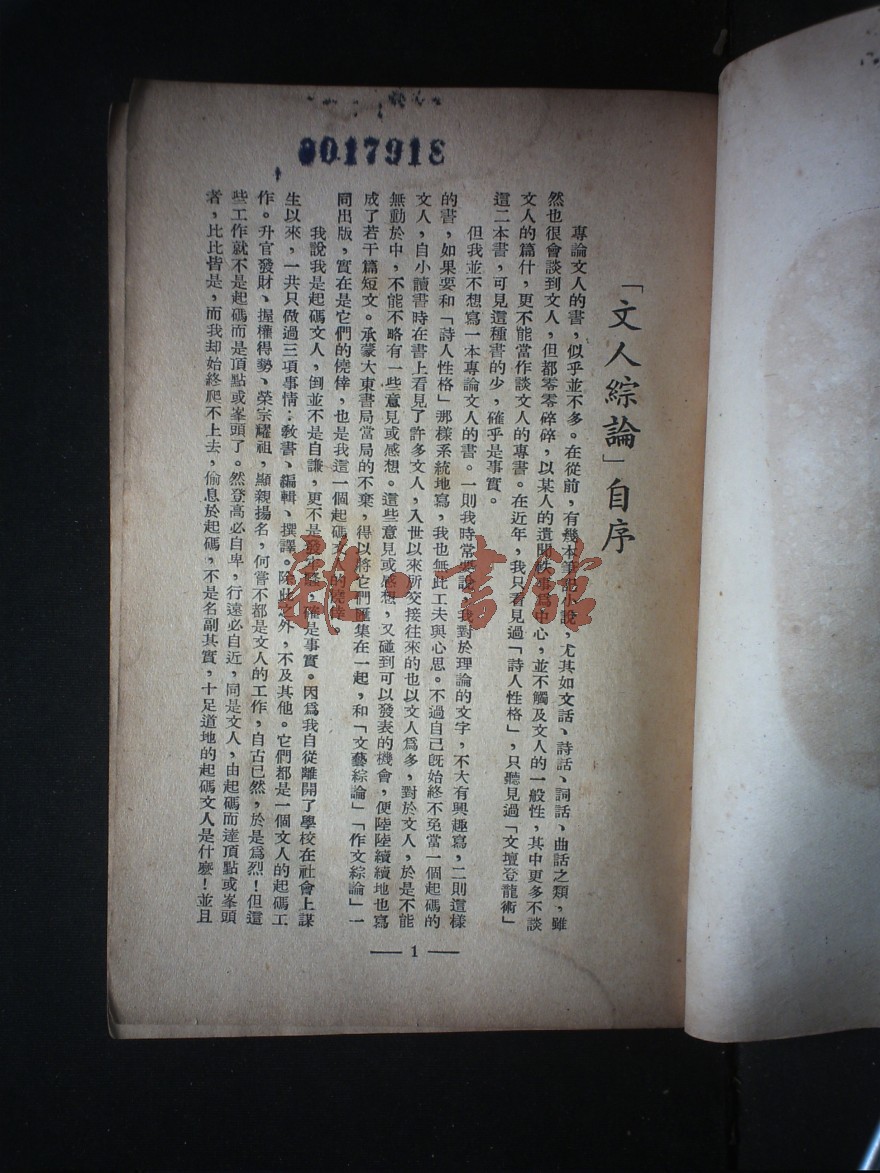 0017918
「文人綜論」自序
專論文人的書，似乎並不多。在從前，有幾本筆記小說，尤其如文話、詩話、詞話、曲話之類，雖
然也很會談到文人，但都零零碎碎，以某人的遺聞軼事爲中心，並不觸及文人的一般性，其中更多不談
文人的篇什，更不能當作談文人的專書。在近年，我只看見過「詩人性格」，只聽見過「文壇登龍術」
這二本書，可見這種書的少，確乎是事實。
但我並不想寫一本專論文人的書。一則我時常要說，我對於理論的文字，不大有興趣寫，二則這樣
的書，如果要和「詩人性格」那樣系統地寫，我也無此工夫與心思。不過自己旣始終不免當一個起碼的
文人，自小讀書時在書上看見了許多文人，入世以來所交接往來的也以文人爲多，對於文人，於是不能
無動於中，不能不略有一些意見或感想。這些意見或感想，又碰到可以發表的機會，便陸陸續續地也寫
成了若干篇短文。承蒙大東書局當局的不棄，得以將它們匯集在一起，和「文藝綜論」「作文綜論」一
同出版，實在是它們的僥倖，也是我這一個起碼文人的僥倖。
我說我是起碼文人，倒並不是自謙，更不是發牢騷，確是事實。因爲我自從離開了學校在社會上謀
生以來，一共只做過三項事情：敎書、編輯、撰譯。除此之外，不及其他。它們都是一個文人的起碼工
作。升官發財、握權得勢、榮宗耀祖，顯親揚名，何嘗不都是文人的工作，自古已然，於是爲烈！但這
些工作就不是起碼而是頂點或峯頭了。然登高必自卑，行遠必自近，同是文人，由起碼而達頂點或峯頭
者，比比皆是，而我却始終爬不上去，偷息於起碼，不是名副其實，十足道地的起碼文人是什麼！並且
— 1 —
雜·書館